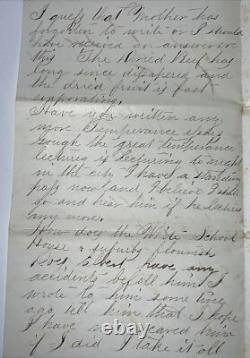 I guess that Mother has
forgotten to write or I should
have received an answer ere
this The Dried Beef has
long since disapered and
the dried fruit is fast
evaporating.
Have you written any
more Temperance
Gough the great temperance
lecturer is lecturing to night
in the city I have a standing
pass now and I believe I shall
go and hear him if he lectures
any more.
How does the White School
House & flourish
Does Elbert have any
accidents befall him I
wrote to him some time
ago tell him that I hope
I have not scared him
if I did I take it all